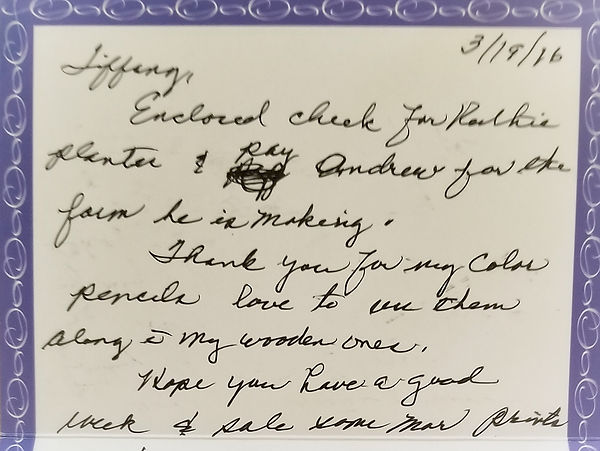 3/19/16
Tiffany,
Enclosed check for Kathie
planter & pay Andrew for the
form he is making.
Thank you for my Color
pencils love to use them
along c̄ my wooden ones.
Hope you have a good
week & sale some mor prints